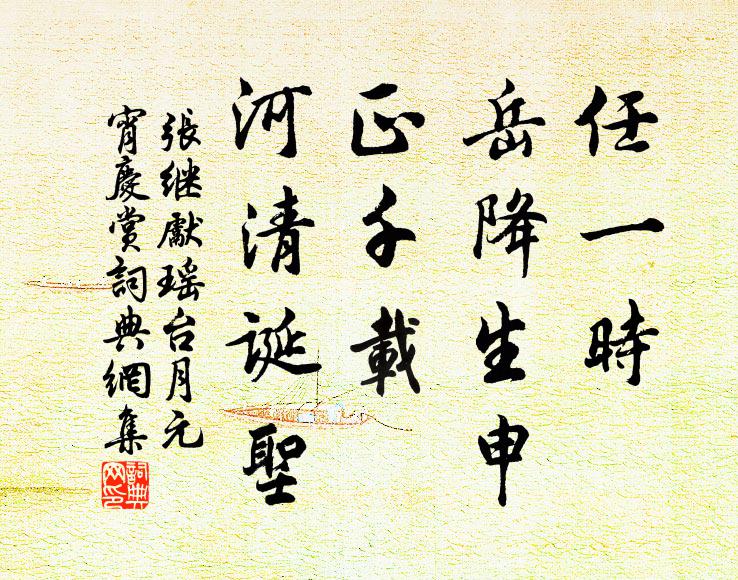 任一時
岳降生申
正千載
河清誕聖
張继獻瑶台月元
宵慶賞詞典網集
詞典網印